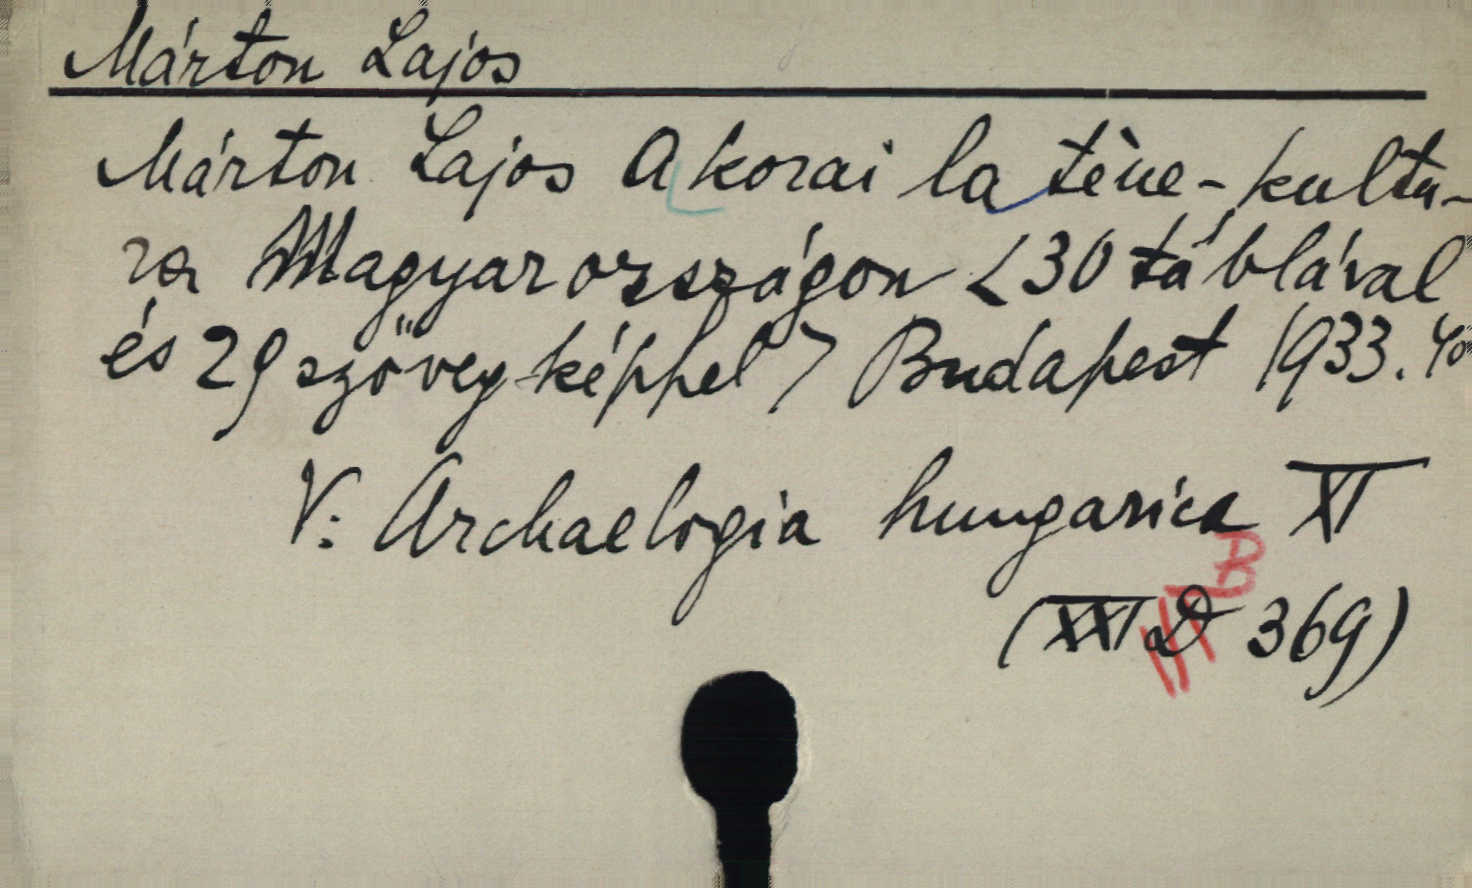 Márton Lajos
Márton Lajos A korai la tène-kultu-
ra Magyarországon <30 táblával
és 29 szövegképpel> Budapest 1933. 4o
V: Archaelogia hungarica XI
(XXI D 369)